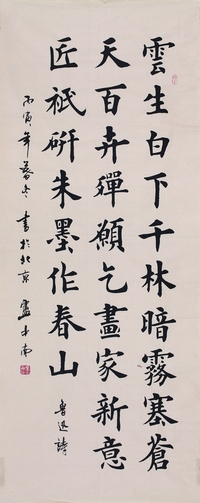 雲生白下千林暗霧塞蒼
天百卉殫願乞畫家新意
匠祇研朱墨作春山 魯迅詩
丙寅年暮冬書於北京 盧中南